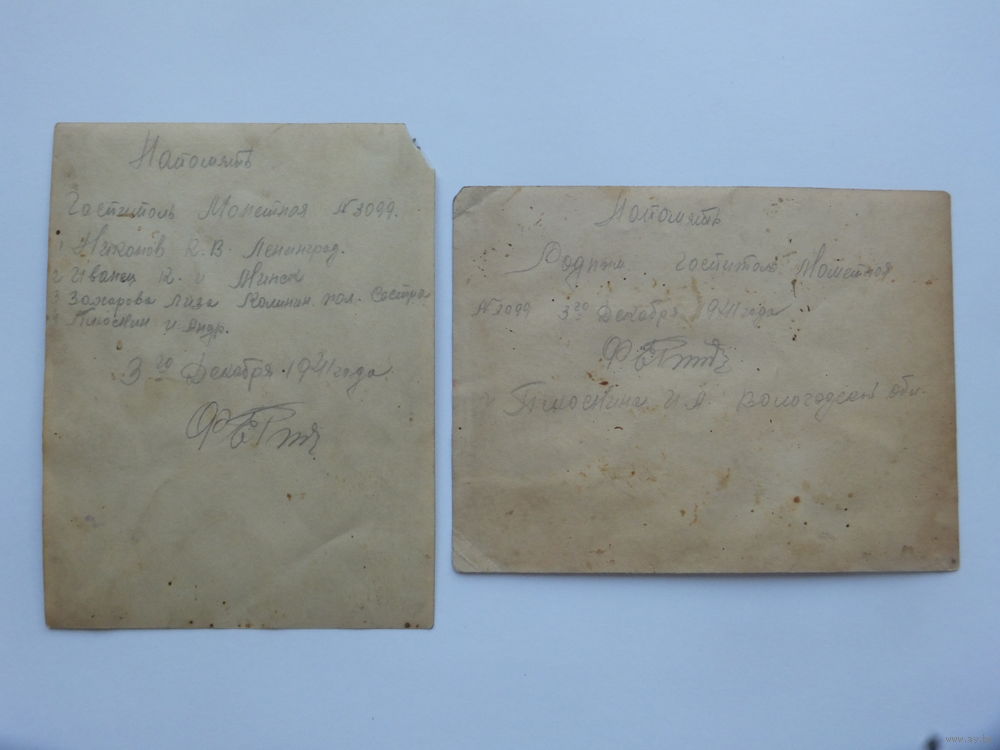 Напомять
Госпиталь Монетная № 3099.
1 Никонов К. В. Ленинград.
2 Иванец К. И Минск
3 Захарова Лиза Калинин. пол. Сестра
4 Плюснин И. Андр.
3го Декабря 1941 года
Напомять
Родным Госпиталь Монетная
№ 3099 3го Декабря 1941 года
Плюснина И. А. Вологодская обл.